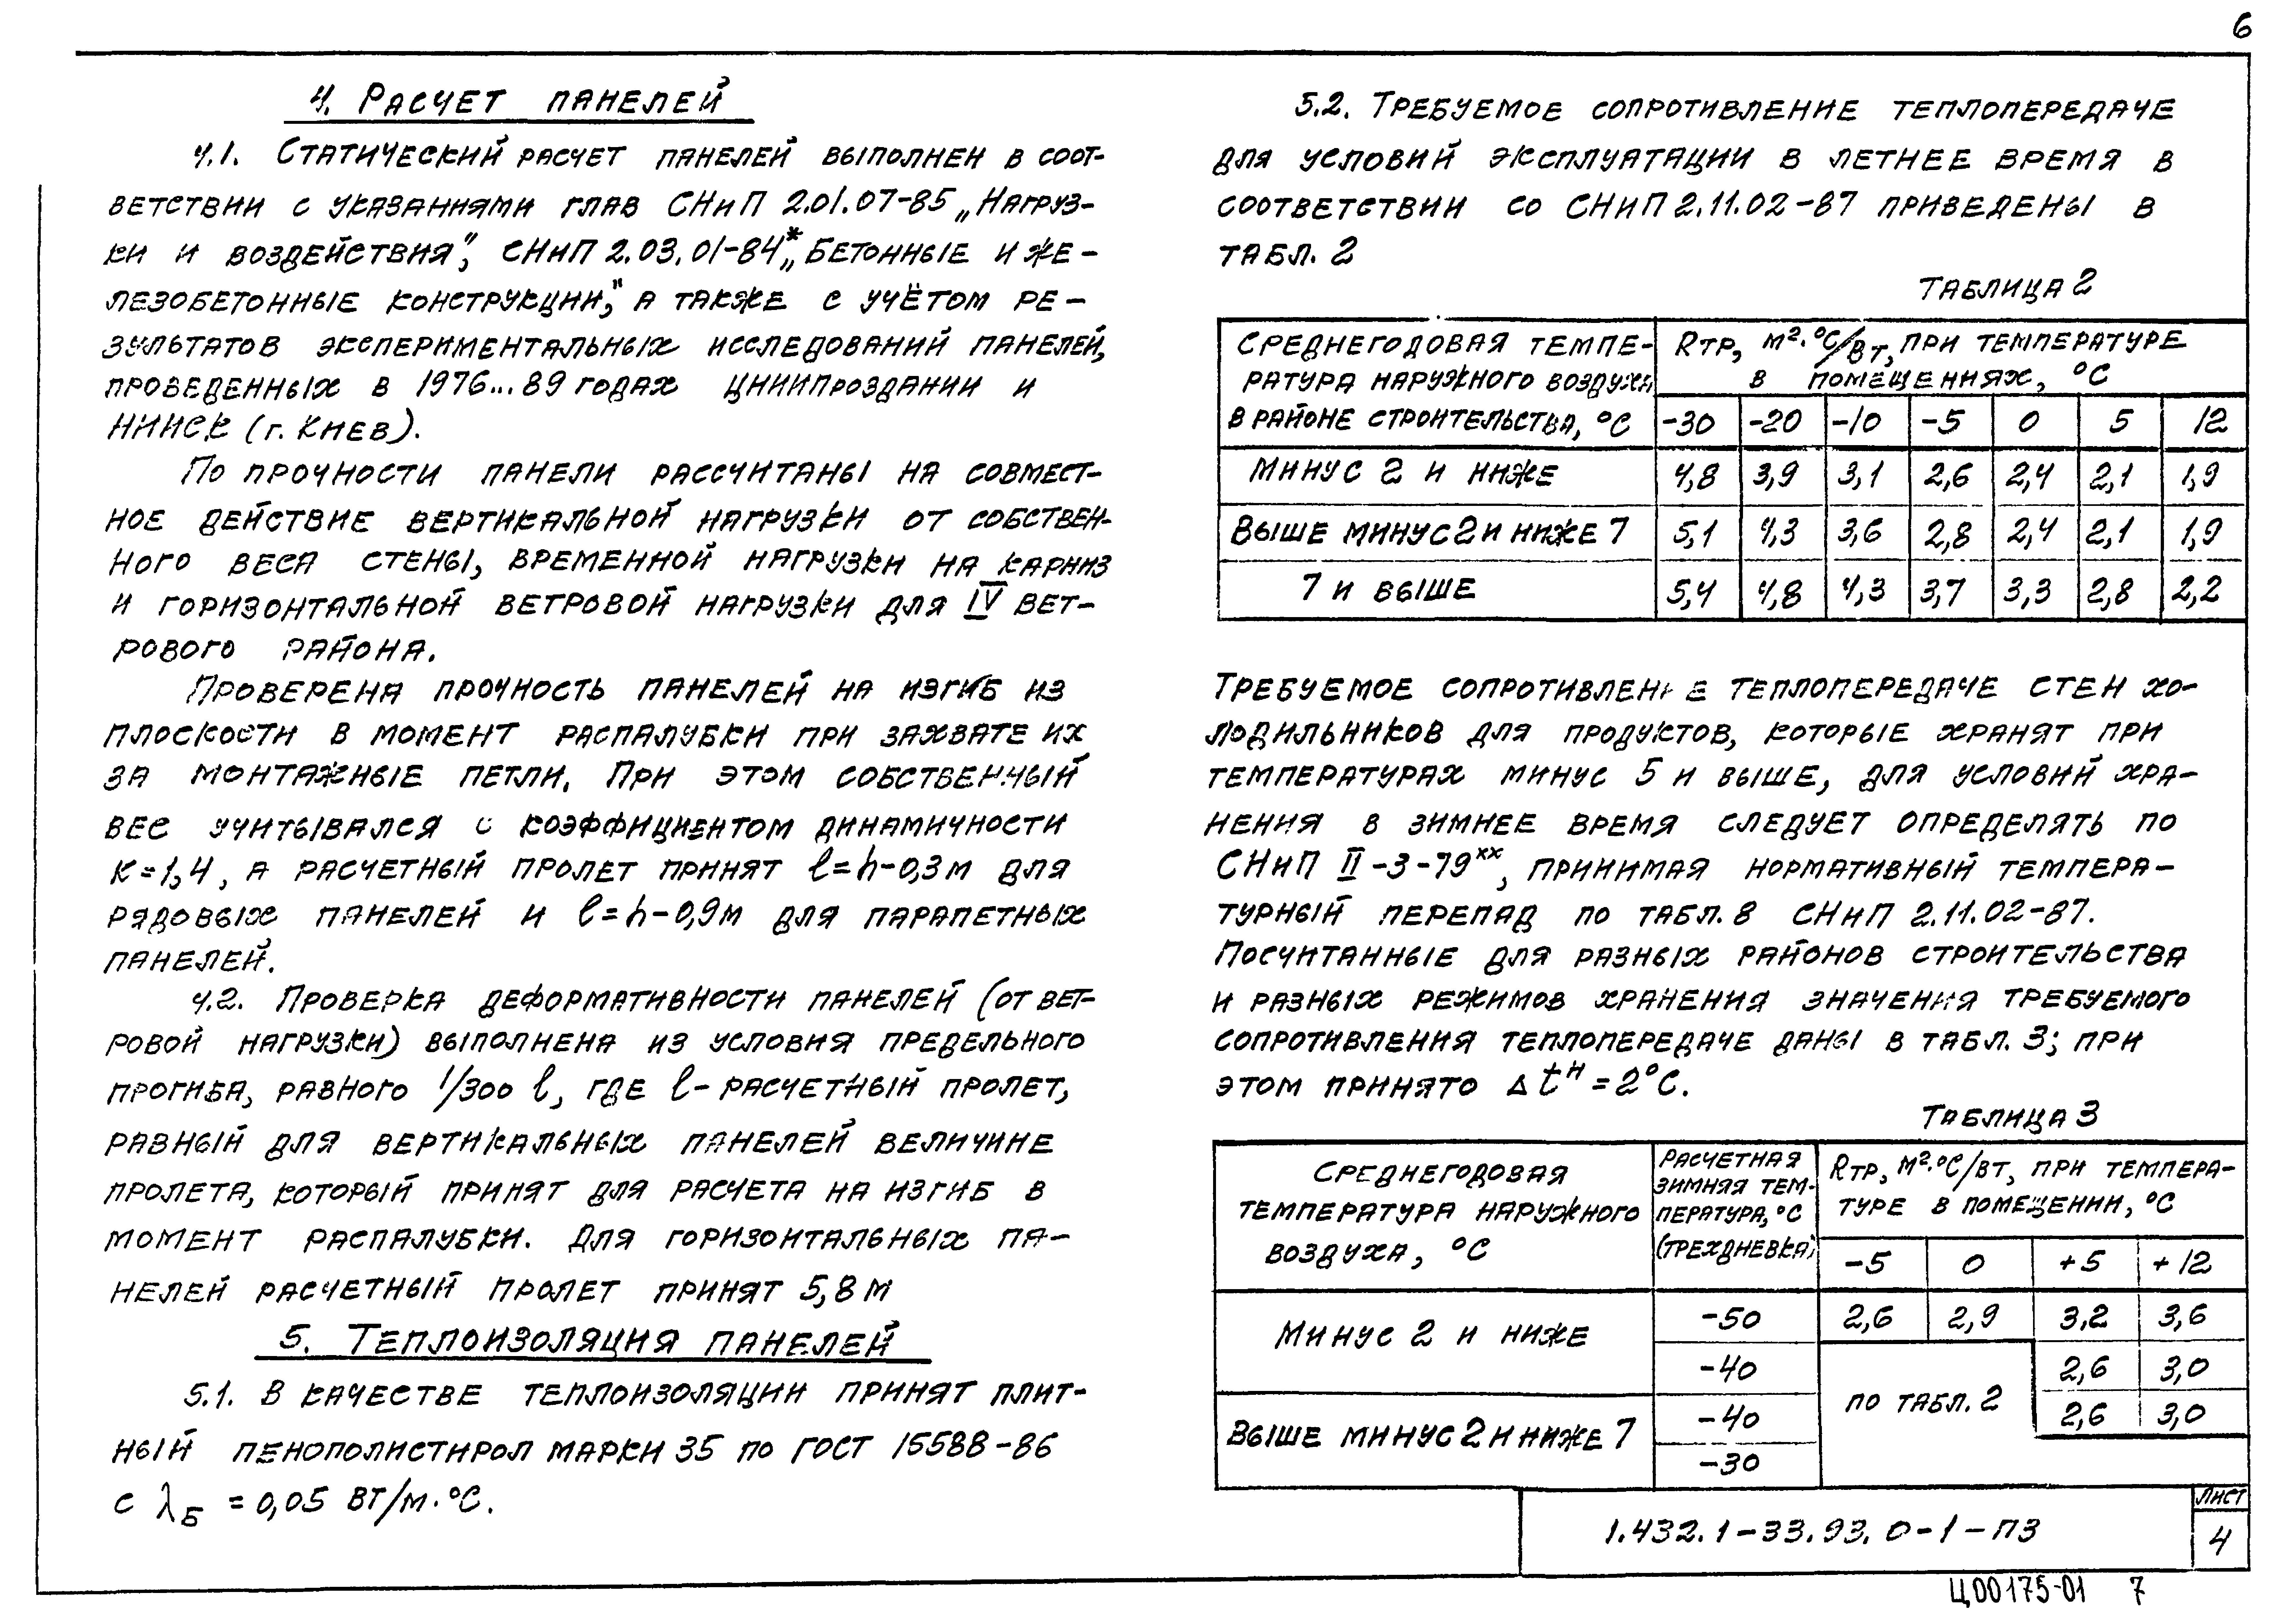 6
4. Расчет панелей
4.1. Статический расчет панелей выполнен в соот-
ветствии с указаниями глав СНиП 2.01.07-85 „Нагруз-
ки и воздействия", СНиП 2.03.01-84* „Бетонные и же-
лезобетонные конструкции", а также с учётом ре-
зультатов экспериментальных исследований панелей,
проведенных в 1976...89 годах ЦНИИпромзданий и
НИИСК (г. Киев).
По прочности панели рассчитаны на совмест-
ное действие вертикальной нагрузки от собствен-
ного веса стены, временной нагрузки на карниз
и горизонтальной ветровой нагрузки для IV вет-
рового района.
Проверена прочность панелей на изгиб из
плоскости в момент распалубки при захвате их
за монтажные петли. При этом собственный
вес учитывался с коэффициентом динамичности
к=1,4, а расчетный пролет принят ℓ=h-0,3м для
рядовых панелей и ℓ=h-0,9м для парапетных
панелей.
4.2. Проверка деформативности панелей (от вет-
ровой нагрузки) выполнена из условия предельного
прогиба, равного 1/300 ℓ, где ℓ- расчетный пролет,
равный для вертикальных панелей величине
пролета, который принят для расчета на изгиб в
момент распалубки. Для горизонтальных па-
нелей расчетный пролет принят 5,8м
5. Теплоизоляция панелей
5.1. В качестве теплоизоляции принят плит-
ный пенополистирол марки 35 по ГОСТ 15588-86
с λБ = 0,05 Вт/м·°С.
5.2. Требуемое сопротивление теплопередаче
для условий эксплуатации в летнее время в
соответствии со СНиП 2.11.02-87 приведены в
табл. 2
Таблица 2
Среднегодовая темпе- Rтр, м²·°С/Вт, при температуре
ратура наружного воздуха в помещениях, °С
в районе строительства, °С -30 -20 -10 -5 0 5 12
Минус 2 и ниже 4,8 3,9 3,1 2,6 2,4 2,1 1,9
Выше минус 2 и ниже 7 5,1 4,3 3,6 2,8 2,4 2,1 1,9
7 и выше 5,4 4,8 4,3 3,7 3,3 2,8 2,2
Требуемое сопротивление теплопередаче стен хо-
лодильников для продуктов, которые хранят при
температурах минус 5 и выше, для условий хра-
нения в зимнее время следует определять по
СНиП II-3-79ˣˣ, принимая нормативный темпера-
турный перепад по табл. 8 СНиП 2.11.02-87.
Посчитанные для разных районов строительства
и разных режимов хранения значения требуемого
сопротивления теплопередаче даны в табл. 3; при
этом принято Δtн = 2°С.
Таблица 3
Среднегодовая
температура наружного
воздуха, °С
Расчетная
зимняя тем-
пература, °С
(трехдневка)
Rтр, м²·°С/Вт, при темпера-
туре в помещении, °С
-5 0 +5 +12
Минус 2 и ниже
-50 2,6 2,9 3,2 3,6
-40 2,6 3,0
по табл. 2
Выше минус 2 и ниже 7
-40 2,6 3,0
-30
1.432.1-33.93.0-1-ПЗ
Лист
4
Ц00175-01 7